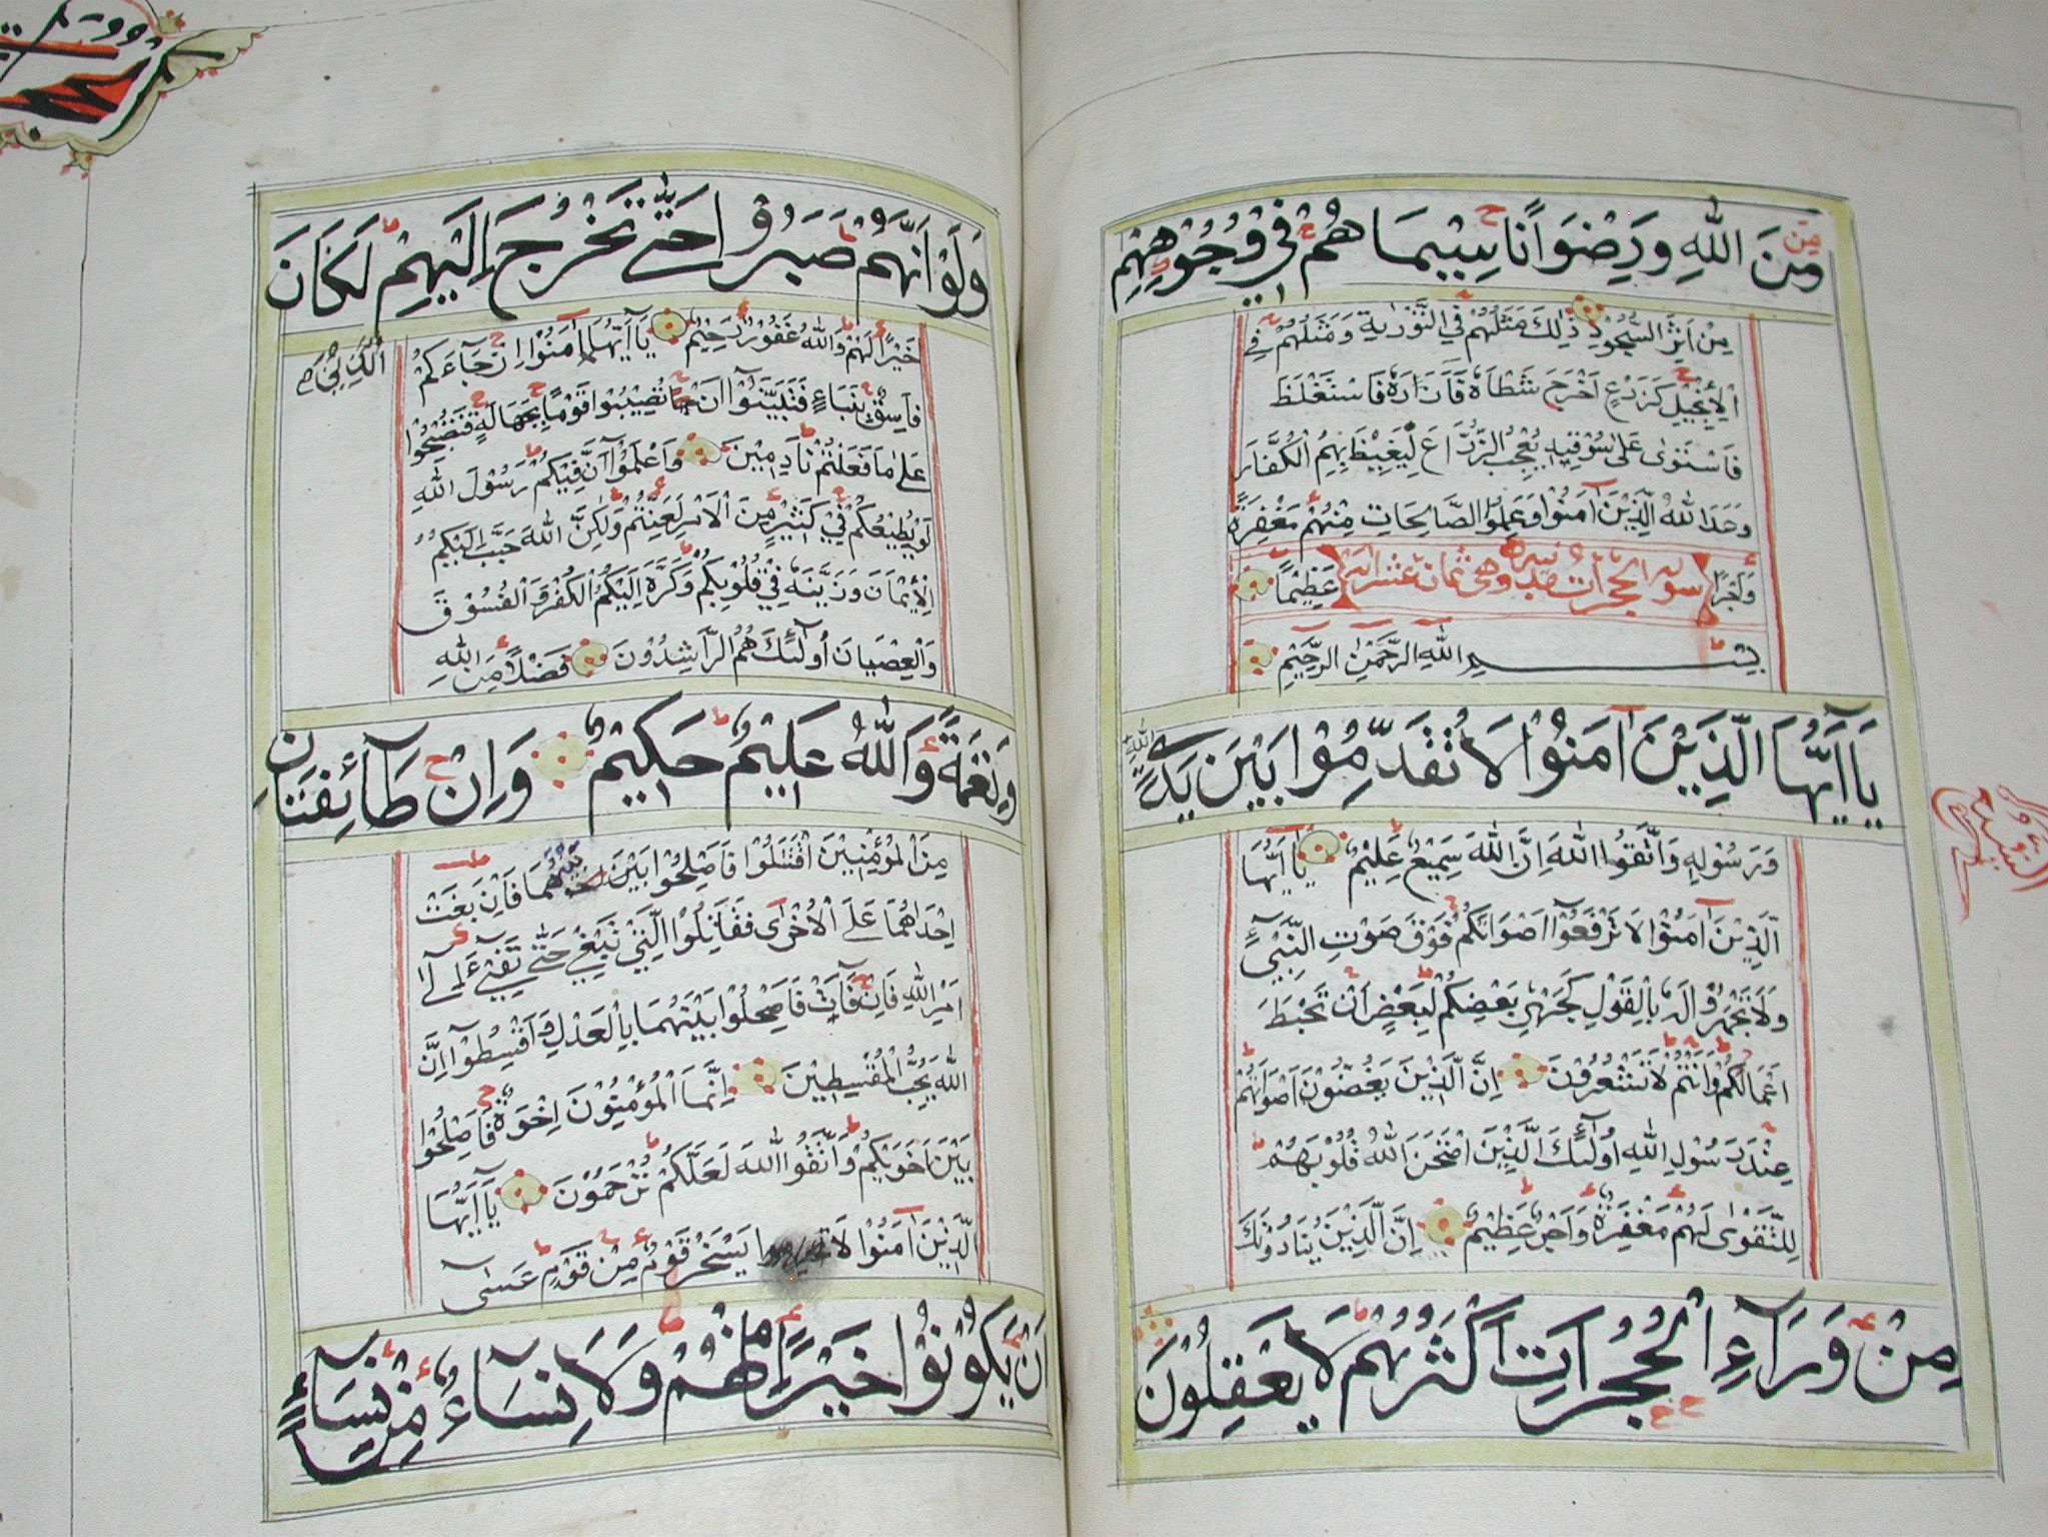 مِنَ اللهِ وَرِضْوَانًا سِيْمَاهُمْ فِيْ وُجُوْهِهِمْ
مِنْ اَثَرِ السُّجُوْدِ ذٰلِكَ مَثَلُهُمْ فِي التَّوْرٰيةِ وَمَثَلُهُمْ فِي
الْاِنْجِيْلِ كَزَرْعٍ اَخْرَجَ شَطْاَهٗ فَاٰزَرَهٗ فَاسْتَغْلَظَ
فَاسْتَوٰى عَلٰى سُوْقِهٖ يُعْجِبُ الزُّرَّاعَ لِيَغِيْظَ بِهِمُ الْكُفَّارَ
وَعَدَ اللهُ الَّذِيْنَ اٰمَنُوْا وَعَمِلُوا الصَّالِحَاتِ مِنْهُمْ مَغْفِرَةً
وَاَجْرًا سورة الحجرات وهي ثمان عشر اية عَظِيْمًا
بِسْــــمِ اللهِ الرَّحْمٰنِ الرَّحِيْمِ
يَا اَيُّهَا الَّذِيْنَ اٰمَنُوْا لَا تُقَدِّمُوْا بَيْنَ يَدَيِ اللهِ
وَرَسُوْلِهٖ وَاتَّقُوا اللهَ اِنَّ اللهَ سَمِيْعٌ عَلِيْمٌ يَا اَيُّهَا
الَّذِيْنَ اٰمَنُوْا لَا تَرْفَعُوْٓا اَصْوَاتَكُمْ فَوْقَ صَوْتِ النَّبِيِّ
وَلَا تَجْهَرُوْا لَهٗ بِالْقَوْلِ كَجَهْرِ بَعْضِكُمْ لِبَعْضٍ اَنْ تَحْبَطَ
اَعْمَالُكُمْ وَاَنْتُمْ لَا تَشْعُرُوْنَ اِنَّ الَّذِيْنَ يَغُضُّوْنَ اَصْوَاتَهُمْ
عِنْدَ رَسُوْلِ اللهِ اُولٰٓئِكَ الَّذِيْنَ امْتَحَنَ اللهُ قُلُوْبَهُمْ
لِلتَّقْوٰى لَهُمْ مَغْفِرَةٌ وَاَجْرٌ عَظِيْمٌ اِنَّ الَّذِيْنَ يُنَادُوْنَكَ
مِنْ وَرَآءِ الْحُجُرَاتِ اَكْثَرُهُمْ لَا يَعْقِلُوْنَ
وَلَوْ اَنَّهُمْ صَبَرُوْا حَتّٰى تَخْرُجَ اِلَيْهِمْ لَكَانَ
خَيْرًا لَهُمْ وَاللهُ غَفُوْرٌ رَحِيْمٌ يَا اَيُّهَا اٰمَنُوْا اِنْ جَآءَكُمْ
الَّذِيْنَ
فَاسِقٌ بِنَبَاءٍ فَتَبَيَّنُوْٓا اَنْ تُصِيْبُوْا قَوْمًا بِجَهَالَةٍ فَتُصْبِحُوْا
عَلٰى مَا فَعَلْتُمْ نَادِمِيْنَ وَاعْلَمُوْٓا اَنَّ فِيْكُمْ رَسُوْلَ اللهِ
لَوْ يُطِيْعُكُمْ فِيْ كَثِيْرٍ مِنَ الْاَمْرِ لَعَنِتُّمْ وَلٰكِنَّ اللهَ حَبَّبَ اِلَيْكُمُ
الْاِيْمَانَ وَزَيَّنَهٗ فِيْ قُلُوْبِكُمْ وَكَرَّهَ اِلَيْكُمُ الْكُفْرَ وَالْفُسُوْقَ
وَالْعِصْيَانَ اُولٰٓئِكَ هُمُ الرَّاشِدُوْنَ فَضْلًا مِنَ اللهِ
وَنِعْمَةً وَاللهُ عَلِيْمٌ حَكِيْمٌ وَاِنْ طَآئِفَتَانِ
مِنَ الْمُؤْمِنِيْنَ اقْتَتَلُوْا فَاَصْلِحُوْا بَيْنَهُمَا فَاِنْ بَغَتْ
اِحْدَاهُمَا عَلَى الْاُخْرٰى فَقَاتِلُوا الَّتِيْ تَبْغِيْ حَتّٰى تَفِيْٓءَ اِلٰٓى
اَمْرِ اللهِ فَاِنْ فَآءَتْ فَاَصْلِحُوْا بَيْنَهُمَا بِالْعَدْلِ وَاَقْسِطُوْٓا اِنَّ
اللهَ يُحِبُّ الْمُقْسِطِيْنَ اِنَّمَا الْمُؤْمِنُوْنَ اِخْوَةٌ فَاَصْلِحُوْا
بَيْنَ اَخَوَيْكُمْ وَاتَّقُوا اللهَ لَعَلَّكُمْ تُرْحَمُوْنَ يَٓا اَيُّهَا
الَّذِيْنَ اٰمَنُوْا لَا يَسْخَرْ قَوْمٌ مِنْ قَوْمٍ عَسٰٓى
اَنْ يَكُوْنُوْا خَيْرًا مِنْهُمْ وَلَا نِسَآءٌ مِنْ نِسَآءٍ